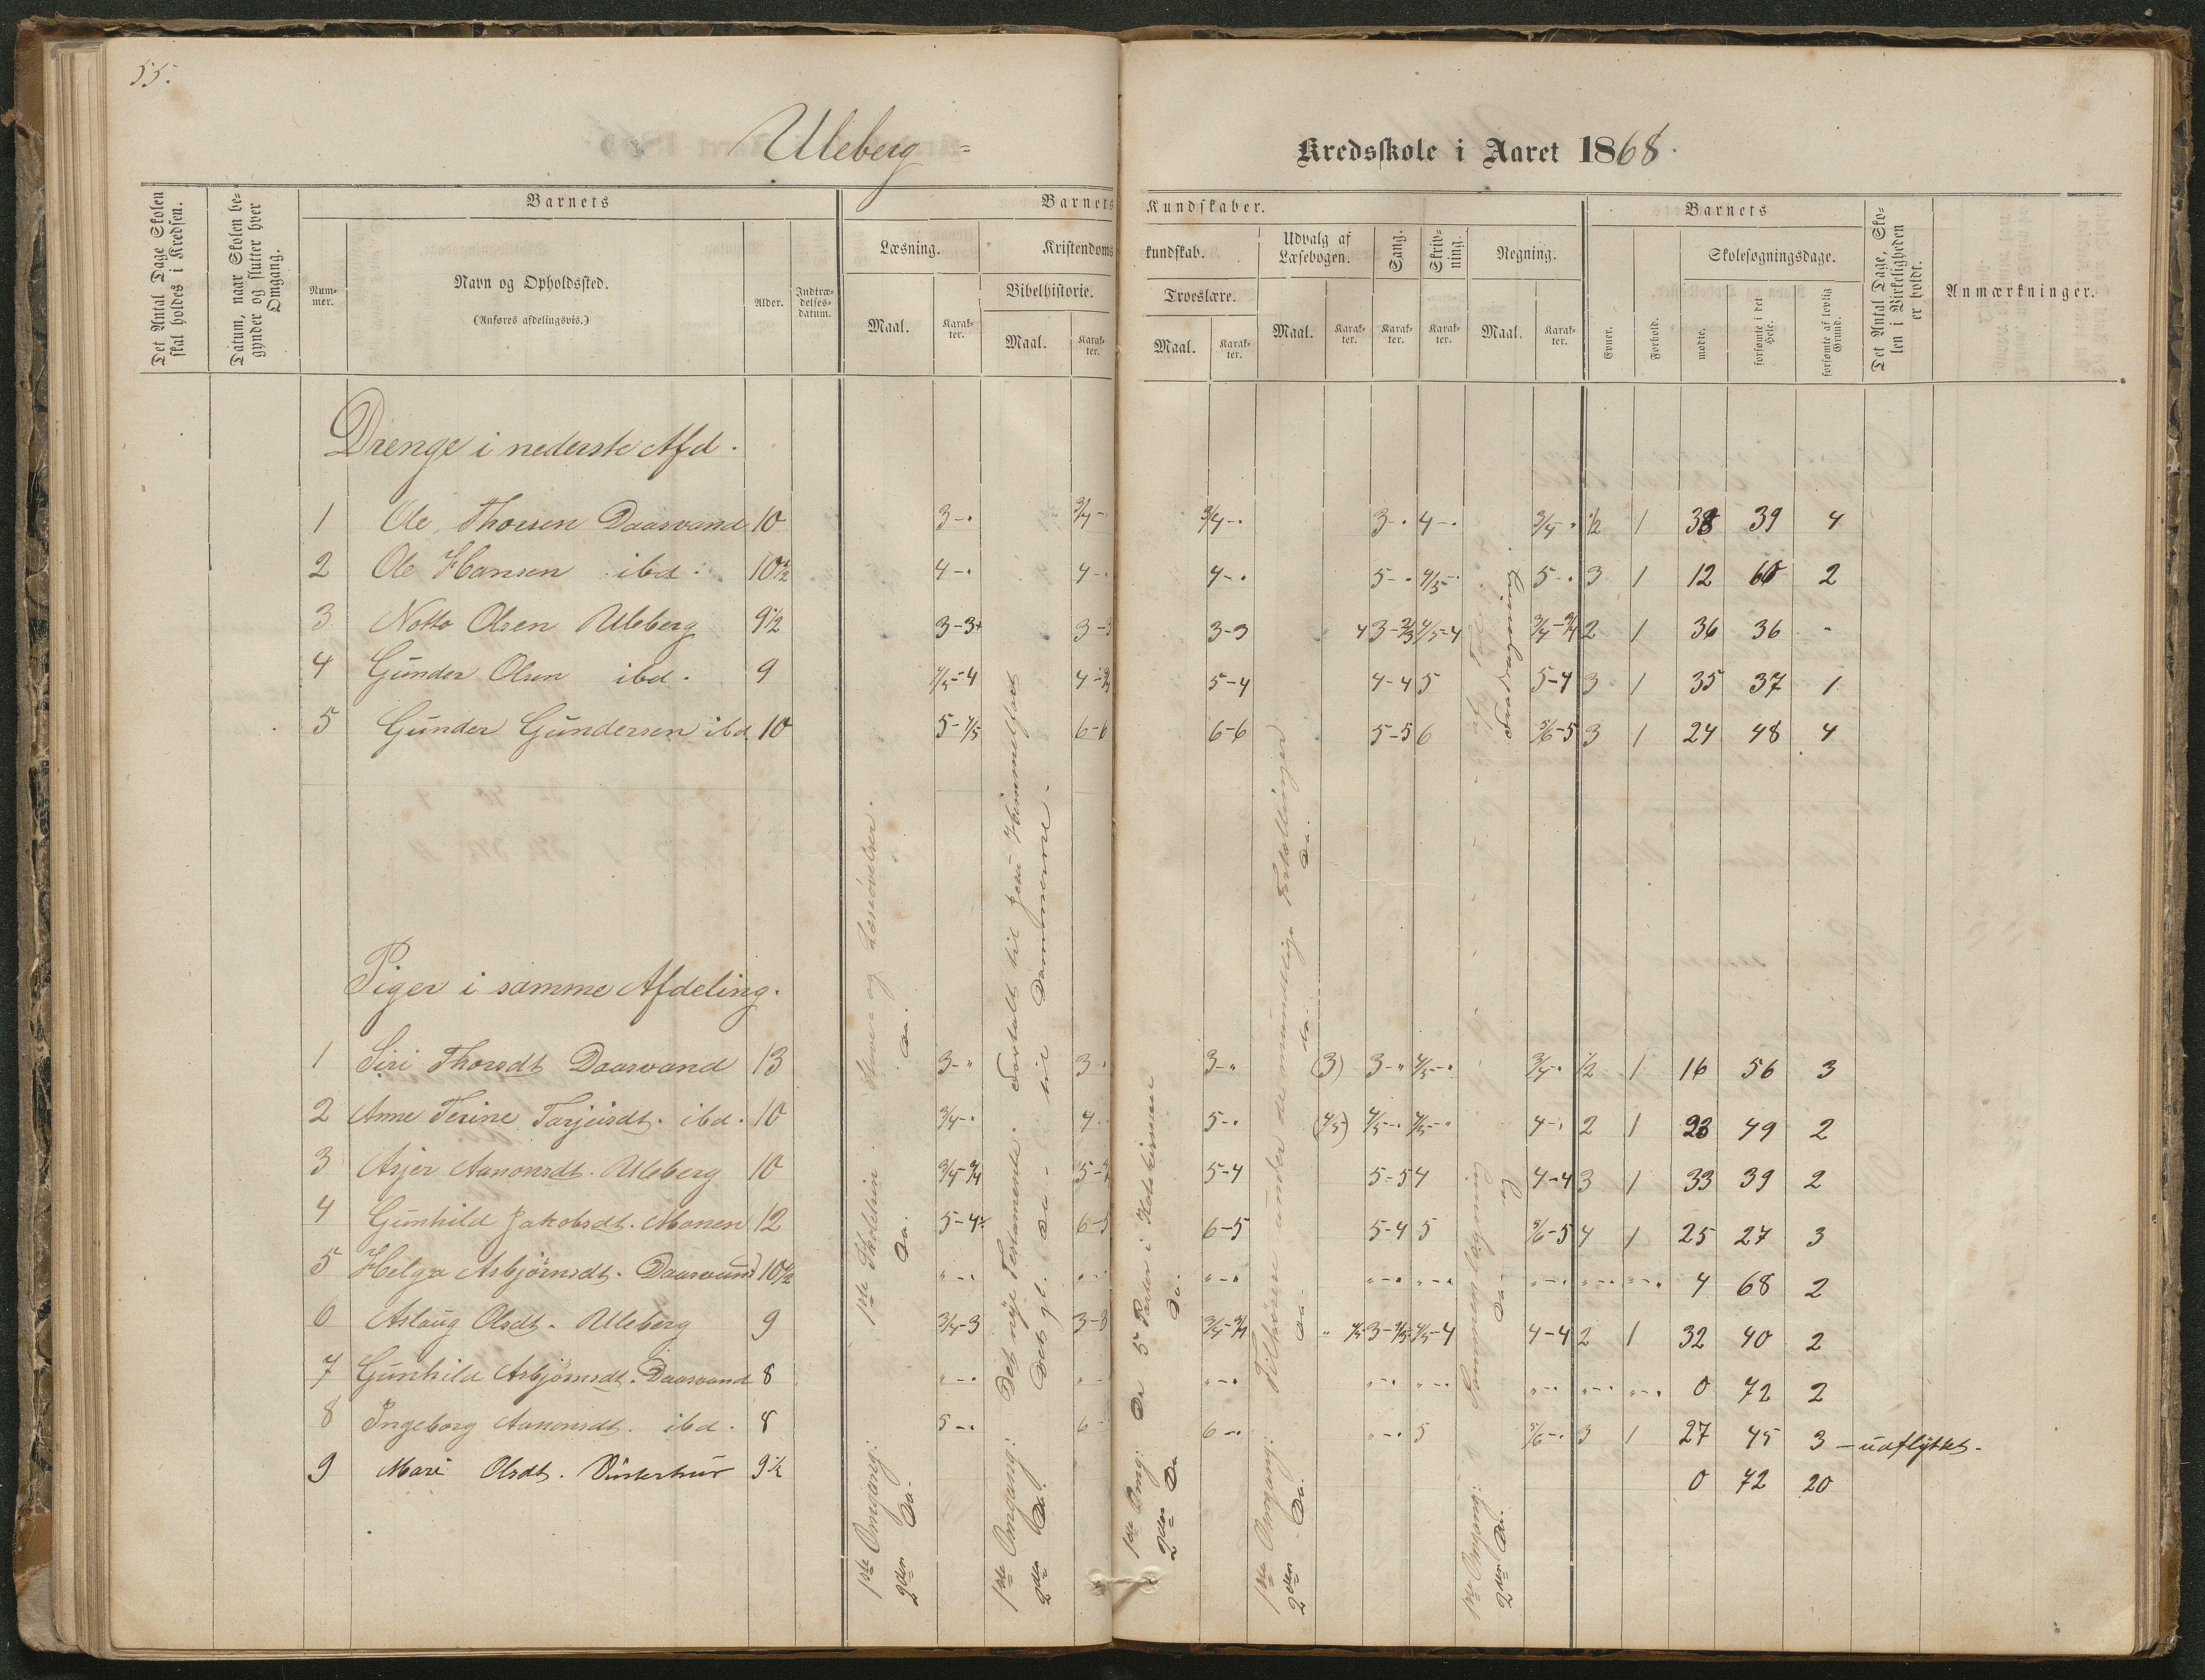 55.
Uleberg - Kredsskole i Aaret 1868.
Det Antal Dage Skolen skal holdes i Kredsen.
Datum, naar Skolen begynder og slutter hver Omgang.
Barnets
Nummer.
Navn og Opholdssted.
(Anføres afdelingsvis.)
Alder.
Indtrædelsesdatum.
Barnets Kundskaber.
Læsning.
Maal.
Karakter.
Kristendomskundskab.
Bibelhistorie.
Maal.
Karakter.
Troeslære.
Maal.
Karakter.
Udvalg af Læsebogen.
Maal.
Karakter.
Sang.
Karakter.
Skrivning.
Karakter.
Regning.
Maal.
Karakter.
Barnets
Evner.
Forhold.
Skolesøgningsdage.
mødte.
forsømte i det Hele.
forsømte af lovlig Grund.
Det Antal Dage, Skolen i Virkeligheden er holdt.
Anmærkninger.
Drenge i nederste Afd.
1 Ole Thorsen Daasvand 10 3-" 3/4- 3/4-" 3-" 4-" 3/4-" 1/2 1 38 39 4
2 Ole Hansen ibd. 10 1/2 4-" 4-" 4-" 5-" 4/5-" 5-" 3 1 12 60 2
3 Notto Olsen Uleberg 9 1/2 3-3+ 3-3 3-3 " 4 3-2/3 4/5-4 3/4-3/4 2 1 36 36 -
4 Gunder Olsen ibd. 9 4/5-4 4-3/4 5-4 4-4 5 5-4 3 1 35 37 1
5 Gunder Gundersen ibd. 10 5-4/5 6-6 6-6 5-5 6 5/6-5 3 1 24 48 4
Piger i samme Afdeling.
1 Siri Thorsdt Daasvand 13 3-" 3-" 3-" (3) 3-" 4/5-" 3/4-" 1/2 1 16 56 3
2 Anne Terine Tarjeisdt. ibd. 10 3/4-" 4-" 5-" (4/5) 4/5-" 4/5-" 4-" 2 1 23 49 2
3 Asjer Aanonsdt. Uleberg 10 3/4-3/4 5-3/4 5-4 5-5 4 4-4 3 1 33 39 2
4 Gunhild Jakobsdt. Monen 12 5-4 6-5 6-5 5-4 5 5/6-5 4 1 25 27 3
5 Helga Asbjörnsdt. Daasvand 10 1/2 "-" "-" "-" "-" "-" "-" "-" "-" 4 68 2
6 Aslaug Olsdt. Uleberg 9 3/4-3 3-3 3/4-3/4 " 4/5 3-2/3 4/5-4 4-4 2 1 32 40 2
7 Gunhild Asbjörnsdt. Daasvand 8 "-" "-" "-" "-" "-" "-" "-" "-" 0 72 2
8 Ingeborg Aanonsdt. ibd. 8 5-" 6- 6-" "-" 5 5/6-" 3 1 27 45 3 - udflyttet -
9 Mari Olsdt. 9 1/2 0 72 20
1ste Omgang: 1ste Skoletrin. Stave- og Læseövelser.
2den Do. Do. Do.
1ste Omgang: Det nÿe Testamente. Fortalt til Jesu Himmelfart
2den Do. Det gl. do- til Dommerne.
1ste Omg: De 5 Parter i Katekismen
2den Do Do.
1ste Omgang: Tilhörere under de mundtlige Fortællinger
2den Do. Do. do. Do.
1ste Omgang:
2den Do. Do.
Fradragning.